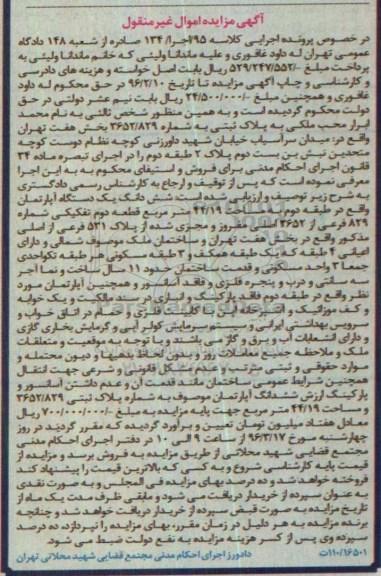 آگهی مزایده اموال غیر منقول
در خصوص پرونده اجرایی کلاسه 95/اجرا/134 صادره از شعبه 148 دادگاه
عمومی تهران له داود غافوری و علیه ماندانا ولیئی که خانم ماندانا ولیئی به
پرداخت مبلغ 529/247/552/- ریال بابت اصل خواسته و هزینه های دادرسی
و کارشناسی و چاپ آگهی مزایده تا تاریخ 96/2/10 در حق محکوم له داود
غافوری و همچنین مبلغ 24/500/000/- ریال بابت نیم عشر دولتی در حق
دولت محکوم گردیده است و به همین منظور شخص ثالثی به نام محمد
ابراز محب ملکی به پلاک ثبتی به شماره 3652/829 بخش هفت تهران
واقع در: میدان سرآسیاب خیابان شهید داورزنی کوچه نظام دوست کوچه
متحدین نبش بن بست دوم پلاک 2 طبقه دوم را در اجرای تبصره ماده 34
قانون اجرای احکام مدنی برای فروش و استیفای محکوم به به این اجرا
معرفی نموده است که پس از توقیف و ارجاع به کارشناس رسمی دادگستری
به شرح زیر توصیف و ارزیابی شده است شش دانگ یک دستگاه آپارتمان
واقع در طبقه دوم به مساحت 44/19 متر مربع قطعه دوم تفکیکی شماره
829 فرعی از 3652 اصلی مفروز و مجزی شده از پلاک 531 فرعی از اصلی
مذکور واقع در بخش هفت تهران و ساختمان ملک موصوف شمالی و دارای
اعیانی 4 طبقه که یک طبقه همکف و 3 طبقه مسکونی هر طبقه تکواحدی
جمعا 3 واحد مسکونی و قدمت ساختمان حدود 11 سال ساخت و نما آجر
سه سانتی و درب و پنجره فلزی و فاقد آسانسور و همچنین آپارتمان مورد
نظر واقع در طبقه دوم فاقد پارکینگ و انباری در سند مالکیت و یک خوابه
و کف موزائیک و آشپزخانه اپن با کابینت فلزی و حمام در اتاق خواب و
سرویس بهداشتی ایرانی و سیستم سرمایش کولر آبی و گرمایش بخاری گازی
و دارای انشعابات آب و برق و گاز می باشند و با توجه به موقعیت و متعلقات
ملک و ملاحظه جمیع معاملات روز و بدون لحاظ بدهیها و دیون محتمله و
موارد حقوقی و ثبتی مترتب و عدم مشکل قانونی و شرعی جهت انتقال
همچنین شرایط عمومی ساختمان مانند قدمت آن و عدم داشتن آسانسور و
پارکینگ ارزش ششدانگ آپارتمان موصوف به شماره پلاک ثبتی 3652/829
و مساحت 44/19 متر مربع جهت پایه مزایده به مبلغ 700/000/000/- ریال
معادل هفتاد میلیون تومان تعیین و برآورد گردیده که مقرر گردید در روز
چهارشنبه مورخ 96/3/17 از ساعت 9 الی 10 در دفتر اجرای احکام مدنی
مجتمع قضایی شهید محلاتی از طریق مزایده به فروش برسد و مزایده از
قیمت پایه کارشناسی شروع و به کسی که بالاترین قیمت را پیشنهاد کند
فروخته خواهد شد و ده درصد بهای مزایده فی المجلس و به صورت نقدی
به عنوان سپرده از خریدار دریافت می شود و مابقی ظرف مدت یک ماه از
تاریخ مزایده به صورت قبض سپرده از خریدار دریافت خواهد شد و چنانچه
برنده مزایده به هر دلیل در زمان مقرر، بهای مزایده را نپردازد، ده درصد
سپرده وی پس از کسر هزینه مزایده به نفع دولت ضبط می شود.
110/16501ت دادورز اجرای احکام مدنی مجتمع قضایی شهید محلاتی تهران